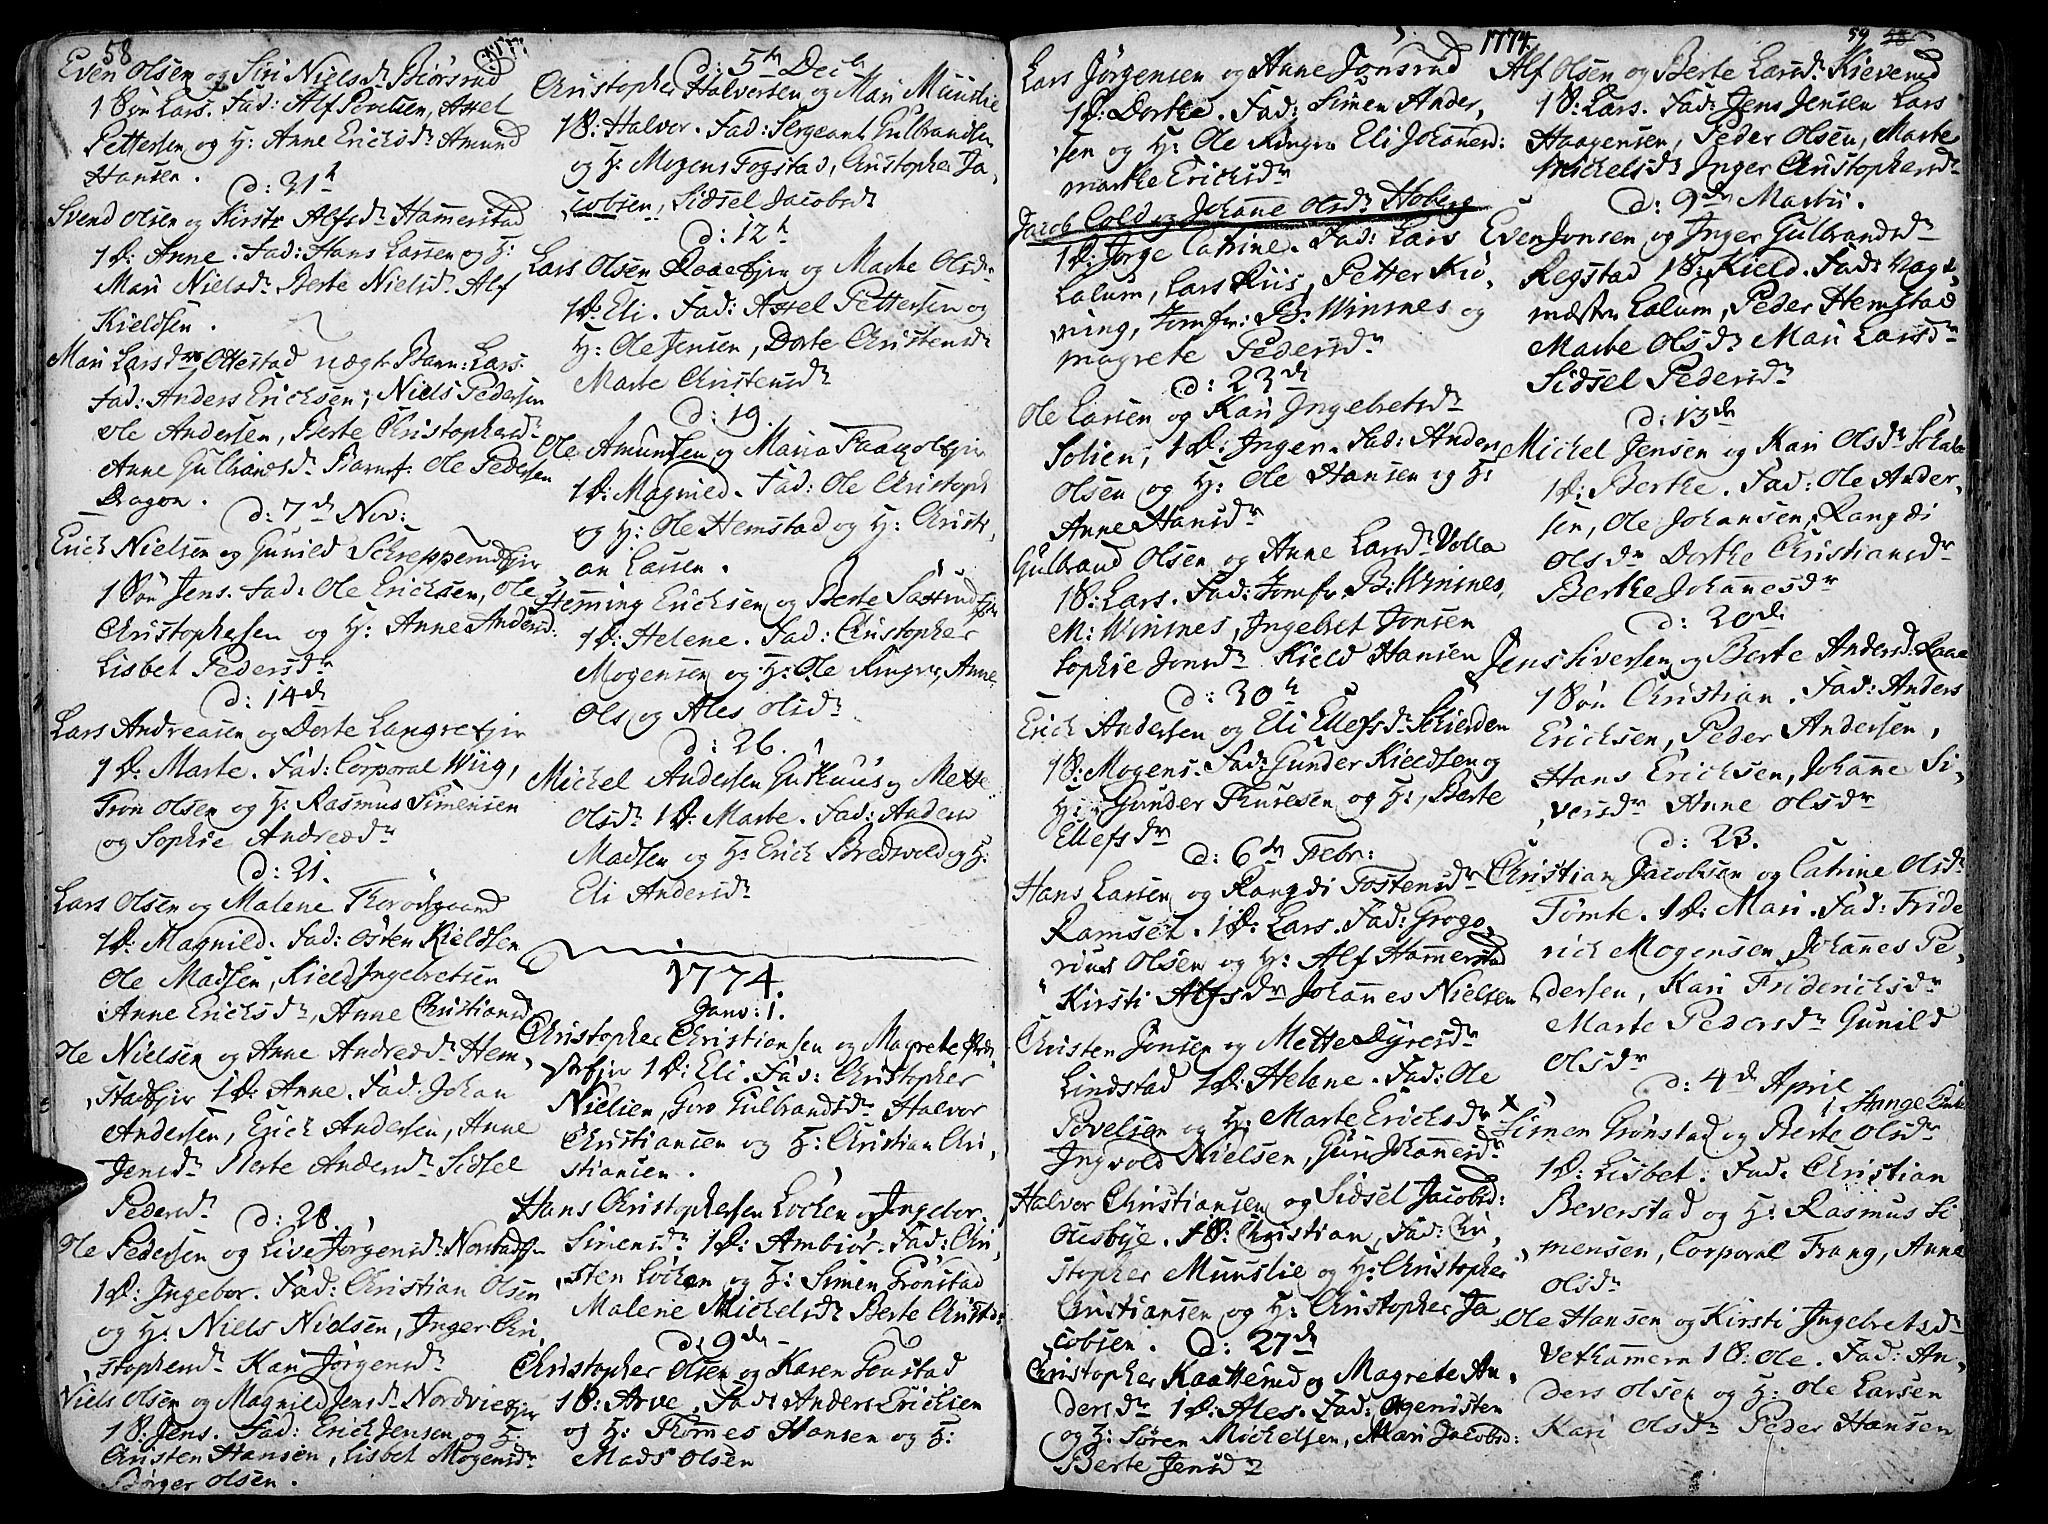 58
1773.
Even Olsen og Siri Nielsd. Biörsrud
1 Sön Lars. Fad: Alf Povelsen, Axel
Pettersen og H: Anne Ericksdr Amund
Hansen.
d: 31h
Svend Olsen og Kirsti Alfsdr Hammerstad
1 D: Anne. Fad: Hans Larsen og H:
Mari Nielsdr Berte Nielsdr Alf
Kieldsen.
Mari Larsdr Ottestad uægte Barn: Lars.
Fad: Anders Ericksen, Niels Pedersen
Ole Andersen, Berte Christophersdr
Anne Gulbrandsdr Barnf. Ole Pedersen
Dragon.
d: 7de Nov:
Erich Nielsen og Gunild Schrepperudejer
1 Sön Jens. Fad: Ole Ericksen, Ole
Christophersen og H: Anne Andersd:
Lisbet Pedersdr
d: 14de
Lars Andreasen og Dorte Langreejer
1 D: Marte. Fad: Corporal Wiig,
Tron Olsen og H: Rasmus Simensen
og Sophie Andreædr
d: 21.
Lars Olsen og Malene Thorodsgaard
1 D: Magnild. Fad: Osten Kieldsen
Ole Madsen, Kield Ingelretsen
Anne Ericksdr, Anne Christiansd
Ole Nielsen og Anne Andreædr Hem,
stadejer 1 D: Anne. Fad: Johan
Andersen, Erich Andersen, Anne
Jensdr Berte Andersdr Sidsel
Pedersdr
d: 28.
Ole Pedersen og Live Jörgensdr Norstadejer
1 D: Ingebor. Fad: Christian Olsen
og H: Niels Nielsen, Inger Chri,
stophersdr Kari Jörgensdr
Niels Olsen og Magnild Jensdr Nordvieejer
1 S: Jens. Fad: Erich Jensen og H:
Christen Hansen, Lisbet Mogensdr
Börger Olsen.
d: 5te Decbr
Christopher Halversen og Mari Muuslie
1 S: Halver. Fad: Sergeant Gulbrandsen
og H: Mogens Fogstad, Christopher Ja,
cobsen, Sidsel Jacobsdr
d: 12h
Lars Olsen Raaeejer og Marte Olsdr
1 D: Eli. Fad: Axel Pettersen og
H: Ole Jensen, Dorte Christensdr
Marte Christensdr
d: 19.
Ole Amundsen og Maria Faagolejer
1 D: Magnild. Fad: Ole Christoph
og H: Ole Hemstad og H: Christi,
an Larsen.
Hemming Ericksen og Berte Sastrudejer
1 D: Helene. Fad: Christopher
Mogensen og H: Ole Ringer, Anne
Ols og Ales Olsdr
d: 26.
Michel Andersen Guthuus og Mette
Olsdr 1 D: Marte. Fad: Anders
Madsen og H: Erich Bredvold og H:
Eli Andersdr
1774.
Janv: 1.
Christopher Christiansen og Magrete
1 D: Eli. Fad: Christopher
Nielsen, Goro Gulbrandsdr Halvor
Christiansen og H: Christian Chri,
stiansen.
Hans Christophersen Locken og Ingebor
Simensdr 1 D: Ambiör. Fad: Chri,
sten Locken og H: Simen Grönstad
Malene Michelsdr Berte Christd:
d: 9de
Christopher Olsen og Karen Gonstad
1 S: Arve. Fad: Anders Ericksen
og H: Thomes Hansen og H:
Mads Olsen
1774.
59
Lars Jörgensen og Anne Jonsrud
1 D: Dorthe. Fad: Simen Ander,
sen og H: Ole Ringer Eli Johanesd:
Marthe Ericksdr
Jacob Cold og Johanne Olsdr Hoberg
1 D: Jorge Catrine. Fad: Lars
Lalum, Lars Riis, Petter Kiö,
ning, Jomfr: B: Winsnes og
Magrete Pedersdr
d: 23de
Ole Larsen og Kari Ingelretsdr
Solien, 1 D: Inger. Fad: Anders
Olsen og H: Ole Hansen og H:
Anne Hansdr
Gulbrand Olsen og Anne Larsdr Volla
1 S: Lars. Fad: Jomfr. B: Winsnes,
M: Winsnes, Ingelret Jonsen
Sophie Jonsdr Kield Hansen
d: 30h
Erich Andersen og Eli Ellefsdr Schierden
1 S: Mogens. Fad: Gunder Kieldsen og
H: Gunder Thuresen og H:, Berte
Ellefsdr
d: 6te Febr:
Hans Larsen og Rangdi Tostensdr
Ramset. 1 D: Lars. Fad: Grego,
rius Olsen og H: Alf Hammerstad
Kirsti Alfsdr Johannes Nielsen
Christen Jonsen og Mette Dyresdr
Lindstad 1 D: Helene. Fad: Ole
Povelsen og H: Marte Ericksdr
Ingvold Nielsen, Guri Johannesdr
Halvor Christiansen og Sidsel Jacobsd:
Ousbye. 1 S: Christian, Fad: Chri,
stopher Muuslie og H: Christopher
Christiansen og H: Christopher Ja
cobsen. d: 27de
Christopher Kaatterud og Magrete An,
dersdr 1 D: Ales. Fad: Ogenisten
og H: Sören Michelsen, Mari Jacobsd:
Berte Jensdr
Alf Olsen og Berte Larsdr Kieverud
1 S: Lars. Fad: Jens Jensen Lars
Haagensen, Peder Olsen, Marte
Michelsdr Inger Christophersdr
d: 9de Martii.
Even Jonsen og Inger Gulbrandsdr
Regstad 1 S: Kield. Fad: Vagt,
mæster Lalum, Peder Hemstad
Marte Olsdr Mari Larsdr
Sidsel Pedersdr
d: 13de
Michel Jensen og Kari Olsdr
1 D: Berthe. Fad: Ole Ander,
sen, Ole Johansen, Rangdi
Olsdr Dorthe Christiansdr
Berthe Johannesdr
d: 20de
Jens Siversen og Berte Andersd: Raae
1 Sön Christian. Fad: Anders
Ericksen, Peder Andersen,
Hans Ericksen, Johanne Si,
versdr Anne Olsdr
d: 23.
Christian Jacobsen og Catrine Olsdr
Tömte. 1 D: Mari. Fad: Fride
rich Mogensen, Johannes Pe,
dersen, Kari Friderichsdr
Marte Pedersdr Gunild
Olsdr
d: 4de April
i Stange
x Simen Grönstad og Berte Olsdr
1 D: Lisbet. Fad: Christian
Beverstad og H: Rasmus Si,
mensen, Corporal Frang, Anne
Olsdr
Ole Hansen og Kirsti Ingelretsdr
Vethammern 1 S: Ole. Fad: An,
ders Olsen og H: Ole Larsen
Kari Olsdr Peder Hansen